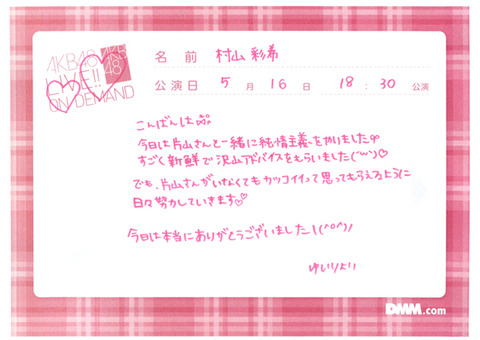 AKB48
LIVE!!
ON DEMAND
AKB
48
名前 村山彩希
公演日 5月16日 18:30 公演
こんばんは
今日は片山さんと一緒に純情主義をやりました
すごく新鮮で沢山アドバイスをもらいました(´ー`)♡
でも、片山さんがいなくてもカッコイイって思ってもらえるように
日々努力していきます♡
今日は本当にありがとうございました\(^o^)/
ゆいりより
DMM.com